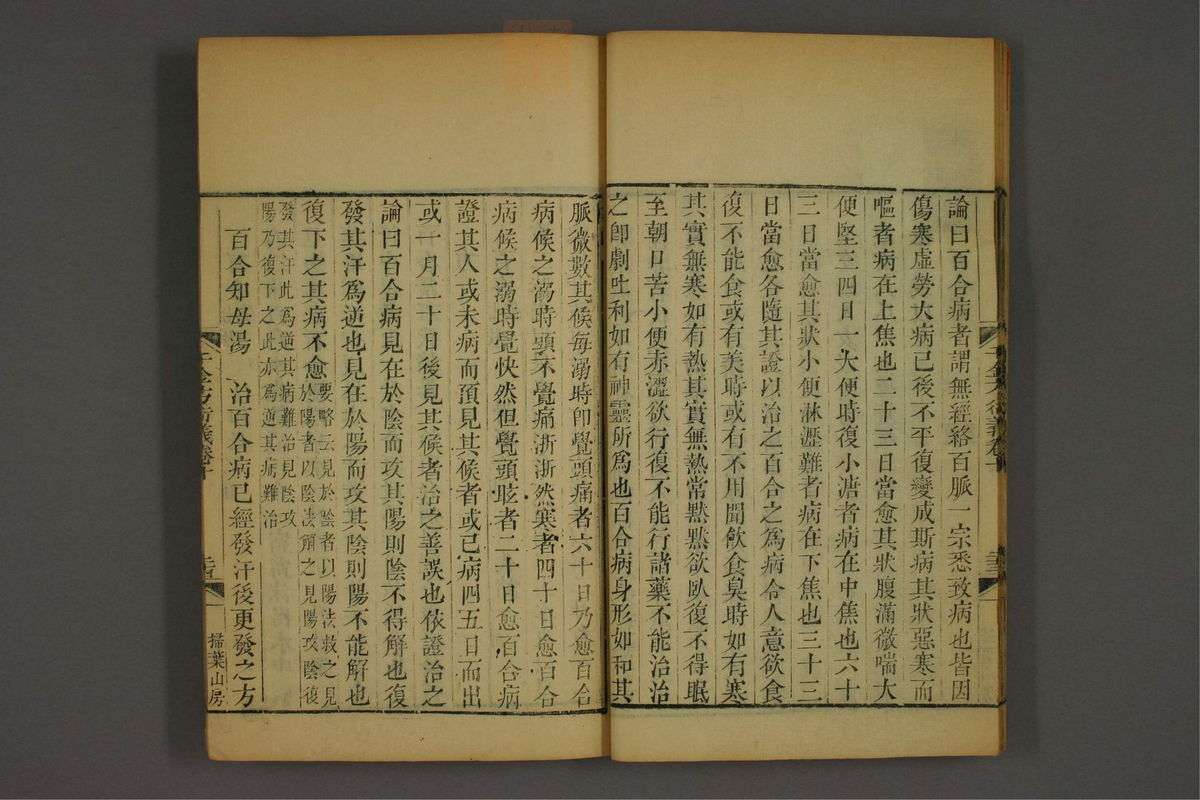 論曰百合病者謂無經絡百脈一宗悉致病也皆因
傷寒虛勞大病已後不平復變成斯病其狀惡寒而
嘔者病在上焦也二十三日當愈其狀腹滿微喘大
便堅三四日一大便時復小溏者病在中焦也六十
三日當愈其狀小便淋瀝難者病在下焦也三十三
日當愈各隨其證以治之百合之為病令人意欲食
復不能食或有美時或有不用聞飲食臭時如有寒
其實無寒如有熱其實無熱常默默欲臥復不得眠
至朝口苦小便赤澀欲行復不能行諸藥不能治治
之卽劇吐利如有神靈所爲也百合病身形如和其
脈微數其候每溺時卽覺頭痛者六十日乃愈百合
病候之溺時頭不覺痛淅淅然寒者四十日愈百合
病候之溺時覺快然但覺頭眩者二十日愈百合病
證其人或未病而預見其候者或已病四五日而出
或一月二十日後見其候者治之善誤也依證治之
論曰百合病見在於陰而攻其陽則陰不得解也復
發其汗爲逆也見在於陽而攻其陰則陽不能解也
復下之其病不愈
要略云見於陰者以陽法救之見
於陽者以陰法解之見陽攻陰復
發其汗此爲逆其病難治見陰攻
陽乃復下之此亦爲逆其病難治
百合知母湯　治百合病已經發汗後更發之方
千金方衍義卷十
掃葉山房